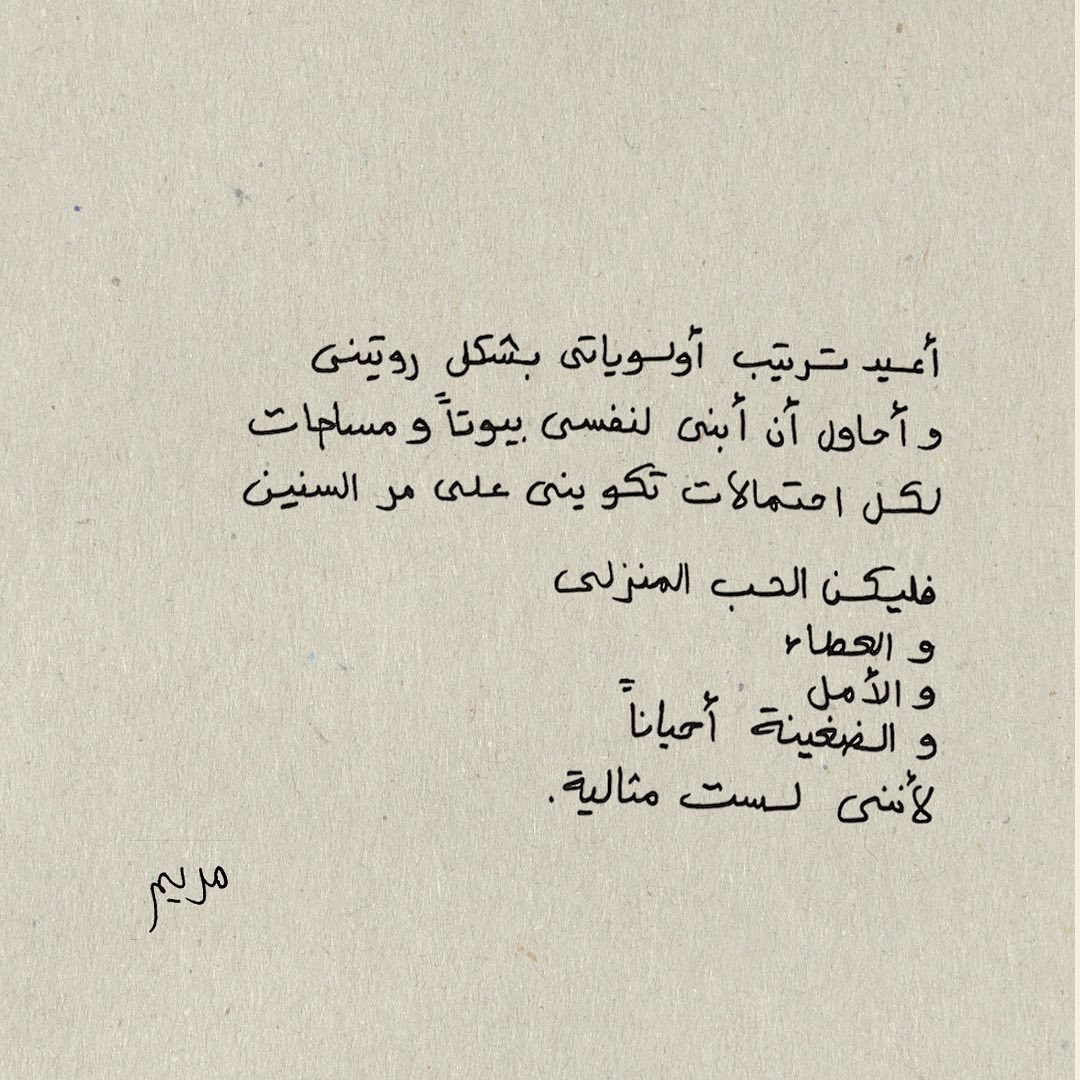 أعيد ترتيب أولوياتى بشكل روتينى
و أحاول أن أبنى لنفسى بيوتاً و مساحات
لكل احتمالات تكوينى على مر السنين
فليكن الحب المنزلى
و العطاء
و الأمل
و الضغينة أحياناً
لأننى لست مثالية.
مريم